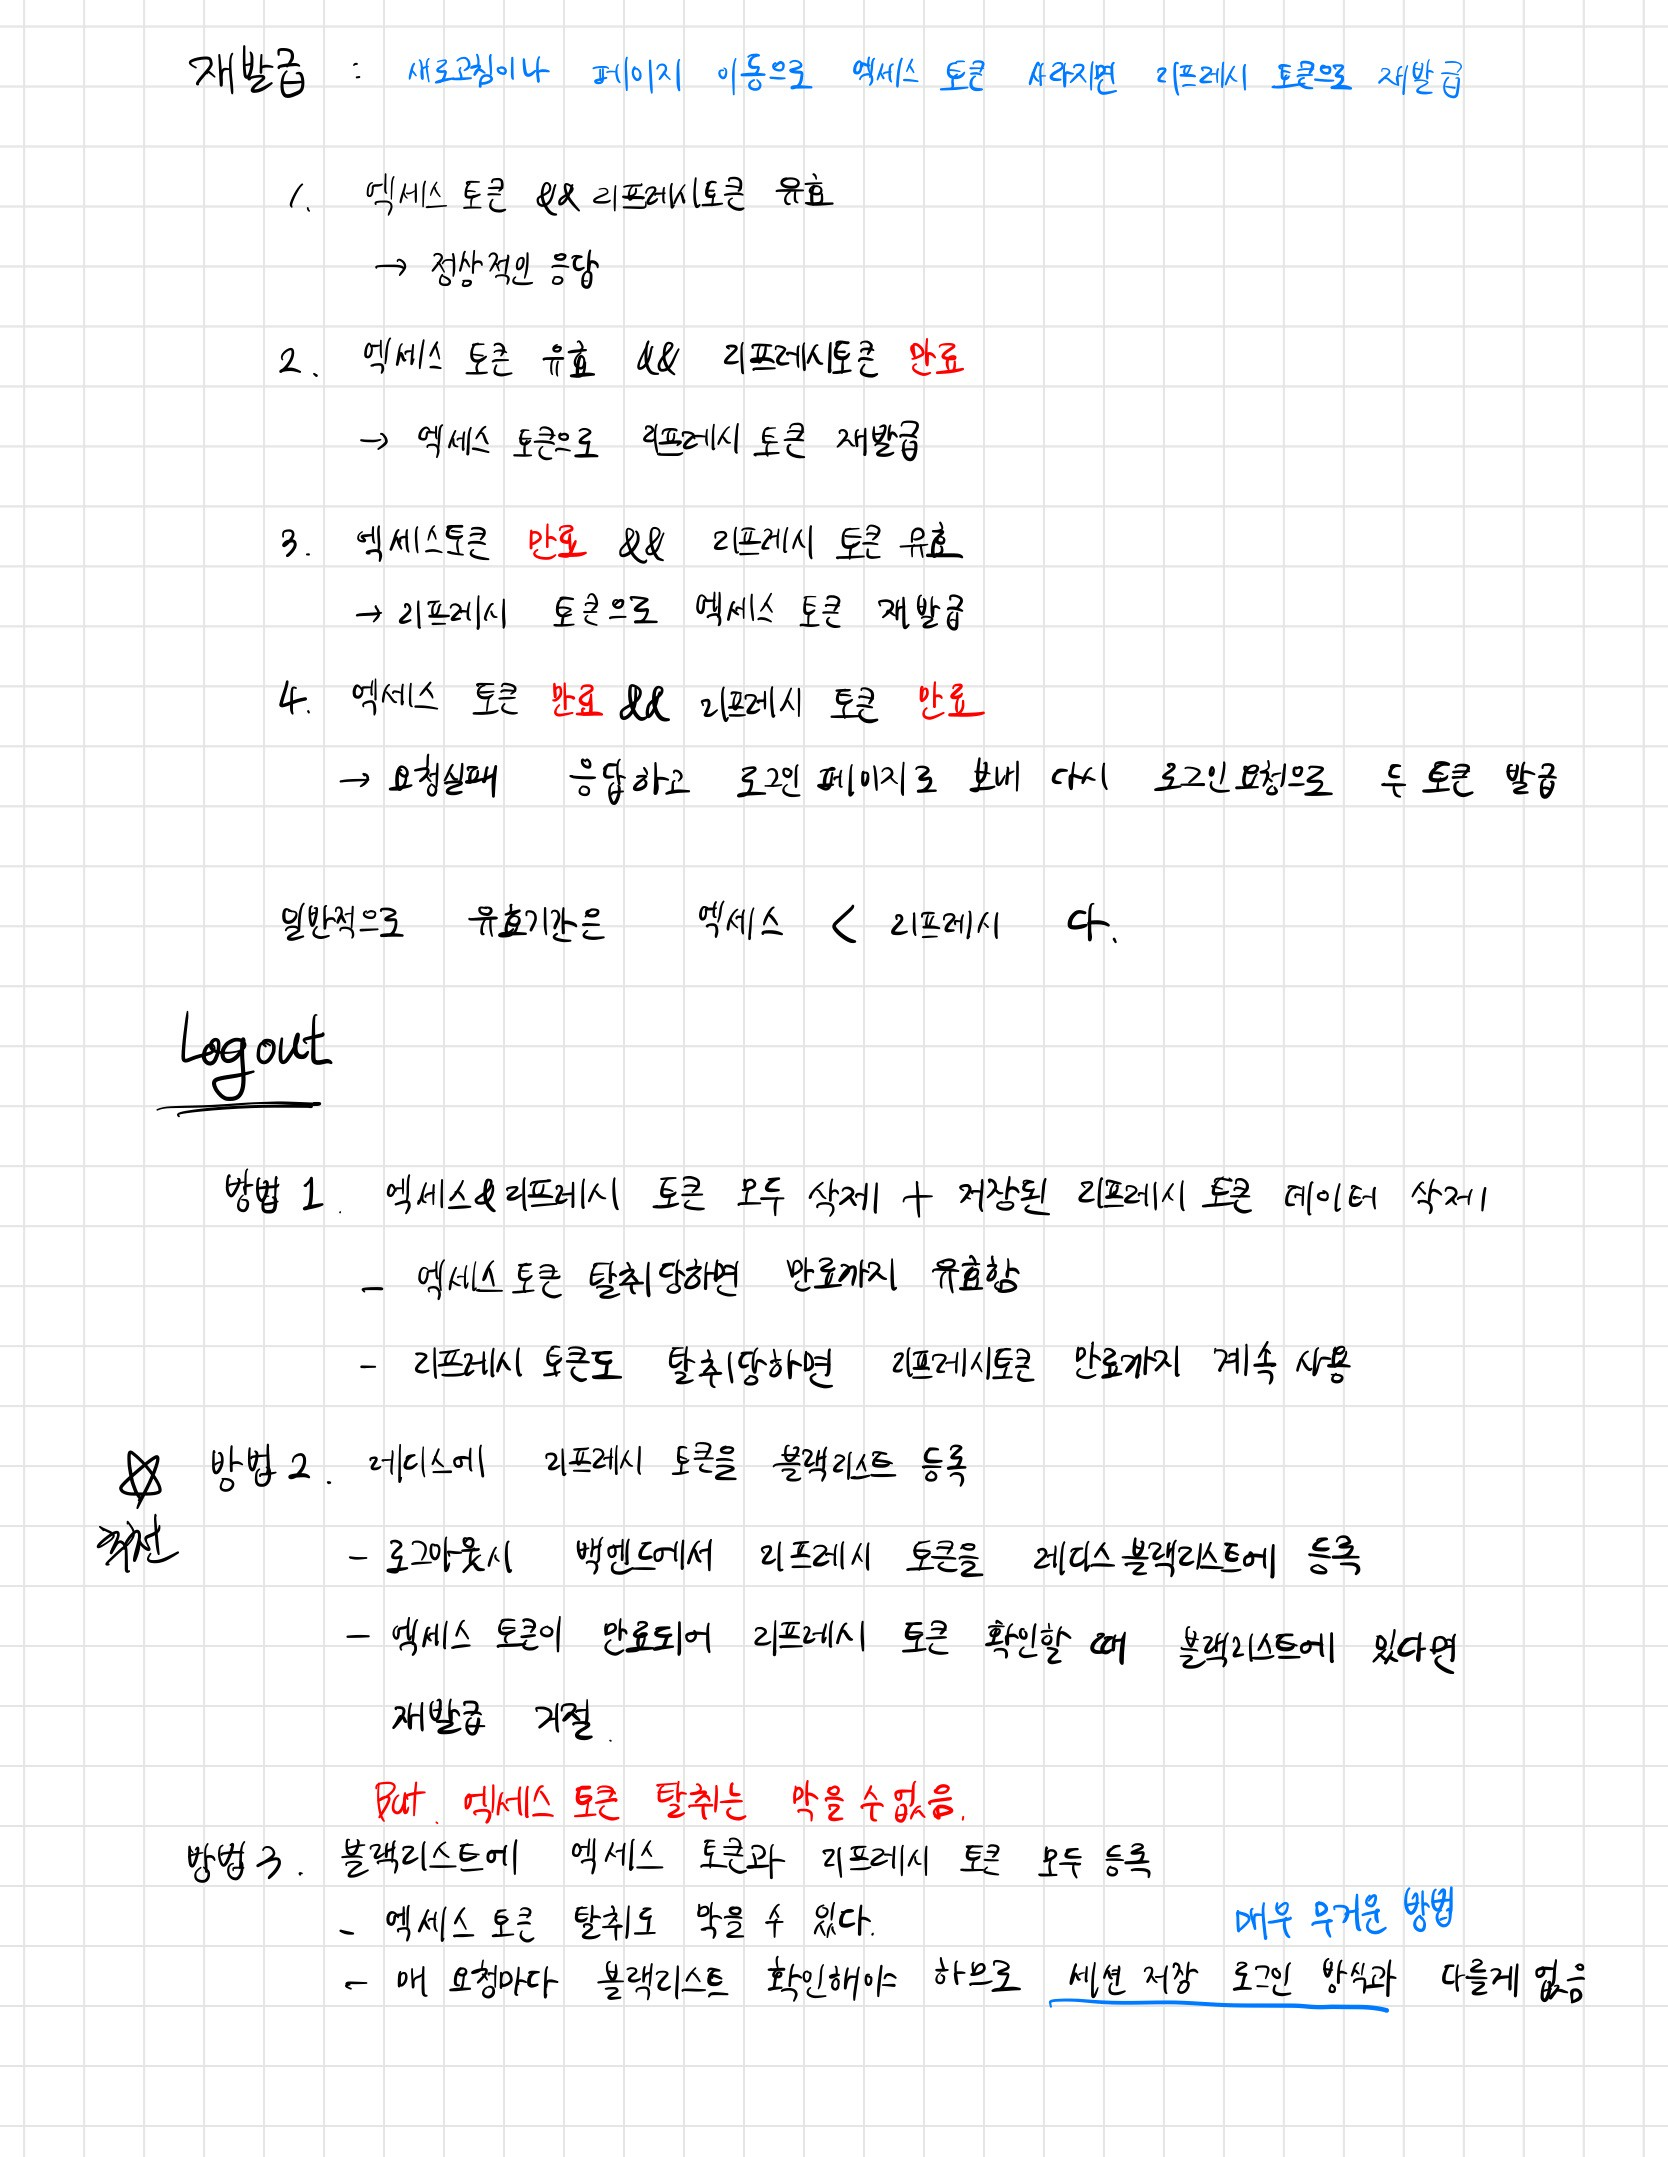 재발급 : 새로고침이나 페이지 이동으로 엑세스 토큰 사라지면 리프레시 토큰으로 재발급
1. 엑세스 토큰 && 리프레시토큰 유효
→ 정상적인 응답
2. 엑세스 토큰 유효 && 리프레시토큰 만료
→ 엑세스 토큰으로 리프레시 토큰 재발급
3. 엑세스토큰 만료 && 리프레시 토큰 유효
→ 리프레시 토큰으로 엑세스 토큰 재발급
4. 엑세스 토큰 만료 && 리프레시 토큰 만료
→ 요청실패 응답하고 로그인 페이지로 보내 다시 로그인요청으로 두 토큰 발급
일반적으로 유효기간은 엑세스 < 리프레시 다.
Logout
방법 1. 엑세스&리프레시 토큰 모두 삭제 + 저장된 리프레시 토큰 데이터 삭제
- 엑세스 토큰 탈취당하면 만료까지 유효함
- 리프레시 토큰도 탈취당하면 리프레시토큰 만료까지 계속 사용
☆ 방법 2. 레디스에 리프레시 토큰을 블랙리스트 등록
추천
- 로그아웃시 백엔드에서 리프레시 토큰을 레디스 블랙리스트에 등록
- 엑세스 토큰이 만료되어 리프레시 토큰 확인할 때 블랙리스트에 있다면
재발급 거절.
But. 엑세스 토큰 탈취는 막을 수 없음.
방법 3. 블랙리스트에 엑세스 토큰과 리프레시 토큰 모두 등록
- 엑세스 토큰 탈취도 막을 수 있다.
매우 무거운 방법
- 매 요청마다 블랙리스트 확인해야 하므로 세션 저장 로그인 방식과 다를게 없음